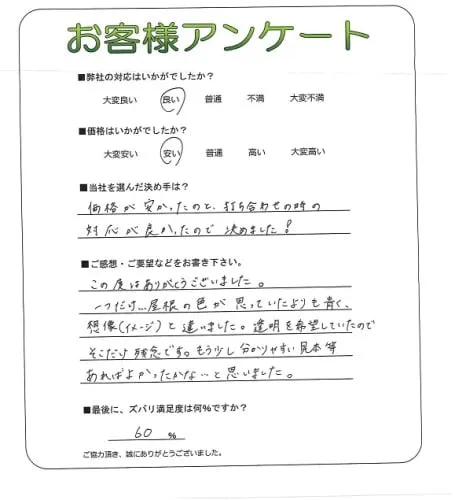 お客様アンケート
■弊社の対応はいかがでしたか？
大変良い 良い 普通 不満 大変不満
■価格はいかがでしたか？
大変安い 安い 普通 高い 大変高い
■当社を選んだ決め手は？
価格が安かったのと、打ち合わせの時の
対応が良かったので決めました！
■ご感想・ご要望などをお書き下さい。
この度はありがとうございました。
一つだけ…屋根の色が思っていたよりも青く、
想像（イメージ）と違いました。透明を希望していたので
そこだけ残念です。もう少し分かりやすい見本等
あればよかったかな、と思いました。
■最後に、ズバリ満足度は何％ですか？
60 ％
ご協力頂き、誠にありがとうございました。